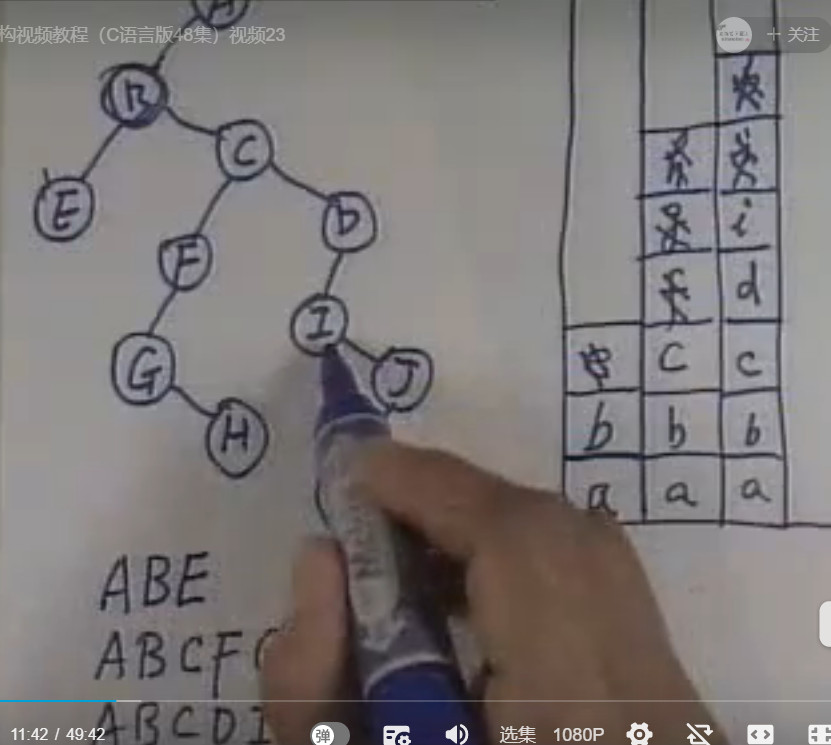 构视频教程（C语言版48集）视频23
+ 关注
B
C
E
D
F
i
d
I
G
J
C
c
H
b
b
b
a
a
a
ABE
ABCF
ABCDI
11:42 / 49:42
弹
选集
1080P